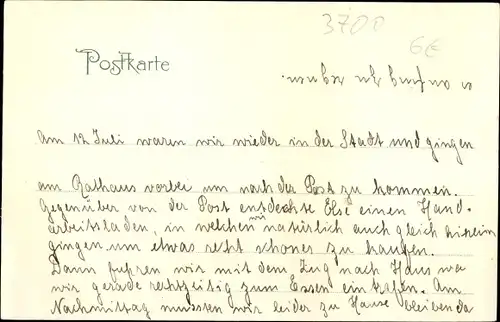 3700
6€
Postkarte
Am 12 Juli waren wir wieder in der Stadt und gingen
am Rathaus vorbei um nach der Post zu kommen.
Gegenüber von der Post entdeckte Else einen Hand-
arbeitsladen, in welchen wir natürlich auch gleich hinein
gingen um etwas recht schönes zu kaufen.
Dann fuhren wir mit dem Zug nach Haus wo
wir gerade rechtzeitig zum Essen eintrafen. Am
Nachmittag mussten wir leider zu Hause bleiben da